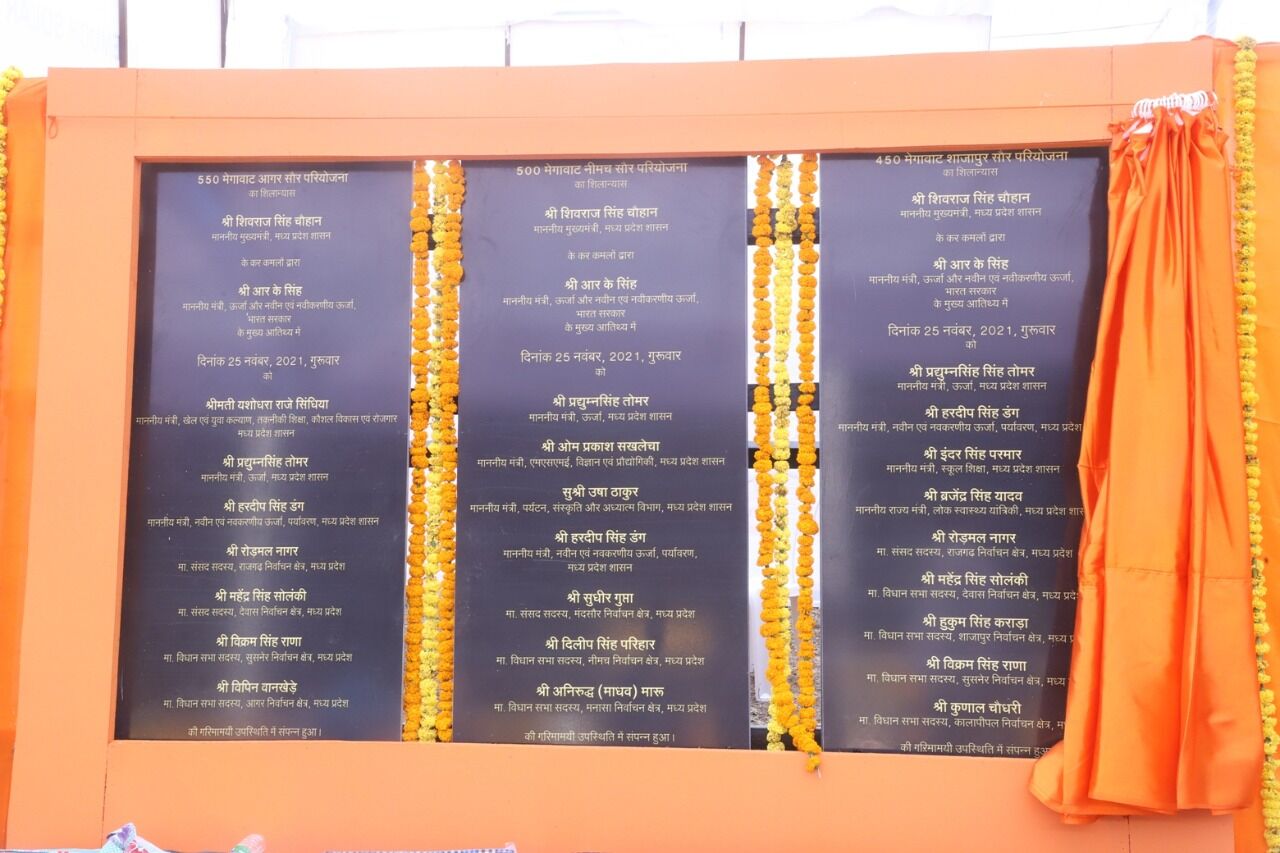 550 मेगावाट आगर सौर परियोजना
का शिलान्यास
श्री शिवराज सिंह चौहान
माननीय मुख्यमंत्री, मध्य प्रदेश शासन
के कर कमलों द्वारा
श्री आर के सिंह
माननीय मंत्री, ऊर्जा और नवीन एवं नवीकरणीय ऊर्जा,
भारत सरकार
के मुख्य आतिथ्य में
दिनांक 25 नवंबर, 2021, गुरूवार
को
श्रीमती यशोधरा राजे सिंधिया
माननीय मंत्री, खेल एवं युवा कल्याण, तकनीकी शिक्षा, कौशल विकास एवं रोजगार
मध्य प्रदेश शासन
श्री प्रद्युम्नसिंह तोमर
माननीय मंत्री, ऊर्जा, मध्य प्रदेश शासन
श्री हरदीप सिंह डंग
माननीय मंत्री, नवीन एवं नवकरणीय ऊर्जा, पर्यावरण, मध्य प्रदेश शासन
श्री रोड़मल नागर
मा. संसद सदस्य, राजगढ़ निर्वाचन क्षेत्र, मध्य प्रदेश
श्री महेंद्र सिंह सोलंकी
मा. संसद सदस्य, देवास निर्वाचन क्षेत्र, मध्य प्रदेश
श्री विक्रम सिंह राणा
मा. विधान सभा सदस्य, सुसनेर निर्वाचन क्षेत्र, मध्य प्रदेश
श्री विपिन वानखेड़े
मा. विधान सभा सदस्य, आगर निर्वाचन क्षेत्र, मध्य प्रदेश
की गरिमामयी उपस्थिति में संपन्न हुआ।
500 मेगावाट नीमच सौर परियोजना
का शिलान्यास
श्री शिवराज सिंह चौहान
माननीय मुख्यमंत्री, मध्य प्रदेश शासन
के कर कमलों द्वारा
श्री आर के सिंह
माननीय मंत्री, ऊर्जा और नवीन एवं नवीकरणीय ऊर्जा,
भारत सरकार
के मुख्य आतिथ्य में
दिनांक 25 नवंबर, 2021, गुरूवार
को
श्री प्रद्युम्नसिंह तोमर
माननीय मंत्री, ऊर्जा, मध्य प्रदेश शासन
श्री ओम प्रकाश सखलेचा
माननीय मंत्री, एमएसएमई, विज्ञान एवं प्रौद्योगिकी, मध्य प्रदेश शासन
सुश्री उषा ठाकुर
माननीय मंत्री, पर्यटन, संस्कृति और अध्यात्म विभाग, मध्य प्रदेश शासन
श्री हरदीप सिंह डंग
माननीय मंत्री, नवीन एवं नवकरणीय ऊर्जा, पर्यावरण,
मध्य प्रदेश शासन
श्री सुधीर गुप्ता
मा. संसद सदस्य, मंदसौर निर्वाचन क्षेत्र, मध्य प्रदेश
श्री दिलीप सिंह परिहार
मा. विधान सभा सदस्य, नीमच निर्वाचन क्षेत्र, मध्य प्रदेश
श्री अनिरुद्ध (माधव) मारू
मा. विधान सभा सदस्य, मनासा निर्वाचन क्षेत्र, मध्य प्रदेश
की गरिमामयी उपस्थिति में संपन्न हुआ।
450 मेगावाट शाजापुर सौर परियोजना
का शिलान्यास
श्री शिवराज सिंह चौहान
माननीय मुख्यमंत्री, मध्य प्रदेश शासन
के कर कमलों द्वारा
श्री आर के सिंह
माननीय मंत्री, ऊर्जा और नवीन एवं नवीकरणीय ऊर्जा,
भारत सरकार
के मुख्य आतिथ्य में
दिनांक 25 नवंबर, 2021, गुरूवार
को
श्री प्रद्युम्नसिंह सिंह तोमर
माननीय मंत्री, ऊर्जा, मध्य प्रदेश शासन
श्री हरदीप सिंह डंग
माननीय मंत्री, नवीन एवं नवकरणीय ऊर्जा, पर्यावरण, मध्य प्रदेश
श्री इंदर सिंह परमार
माननीय मंत्री, स्कूल शिक्षा, मध्य प्रदेश शासन
श्री ब्रजेंद्र सिंह यादव
माननीय राज्य मंत्री, लोक स्वास्थ्य यांत्रिकी, मध्य प्रदेश
श्री रोड़मल नागर
मा. संसद सदस्य, राजगढ़ निर्वाचन क्षेत्र, मध्य प्रदेश
श्री महेंद्र सिंह सोलंकी
मा. विधान सभा सदस्य, देवास निर्वाचन क्षेत्र, मध्य प्रदेश
श्री हुकुम सिंह कराड़ा
मा. विधान सभा सदस्य, शाजापुर निर्वाचन क्षेत्र, मध्य
श्री विक्रम सिंह राणा
मा. विधान सभा सदस्य, सुसनेर निर्वाचन क्षेत्र, मध्य
श्री कुणाल चौधरी
मा. विधान सभा सदस्य, कालापीपल निर्वाचन क्षेत्र,
की गरिमामयी उपस्थिति में संपन्न